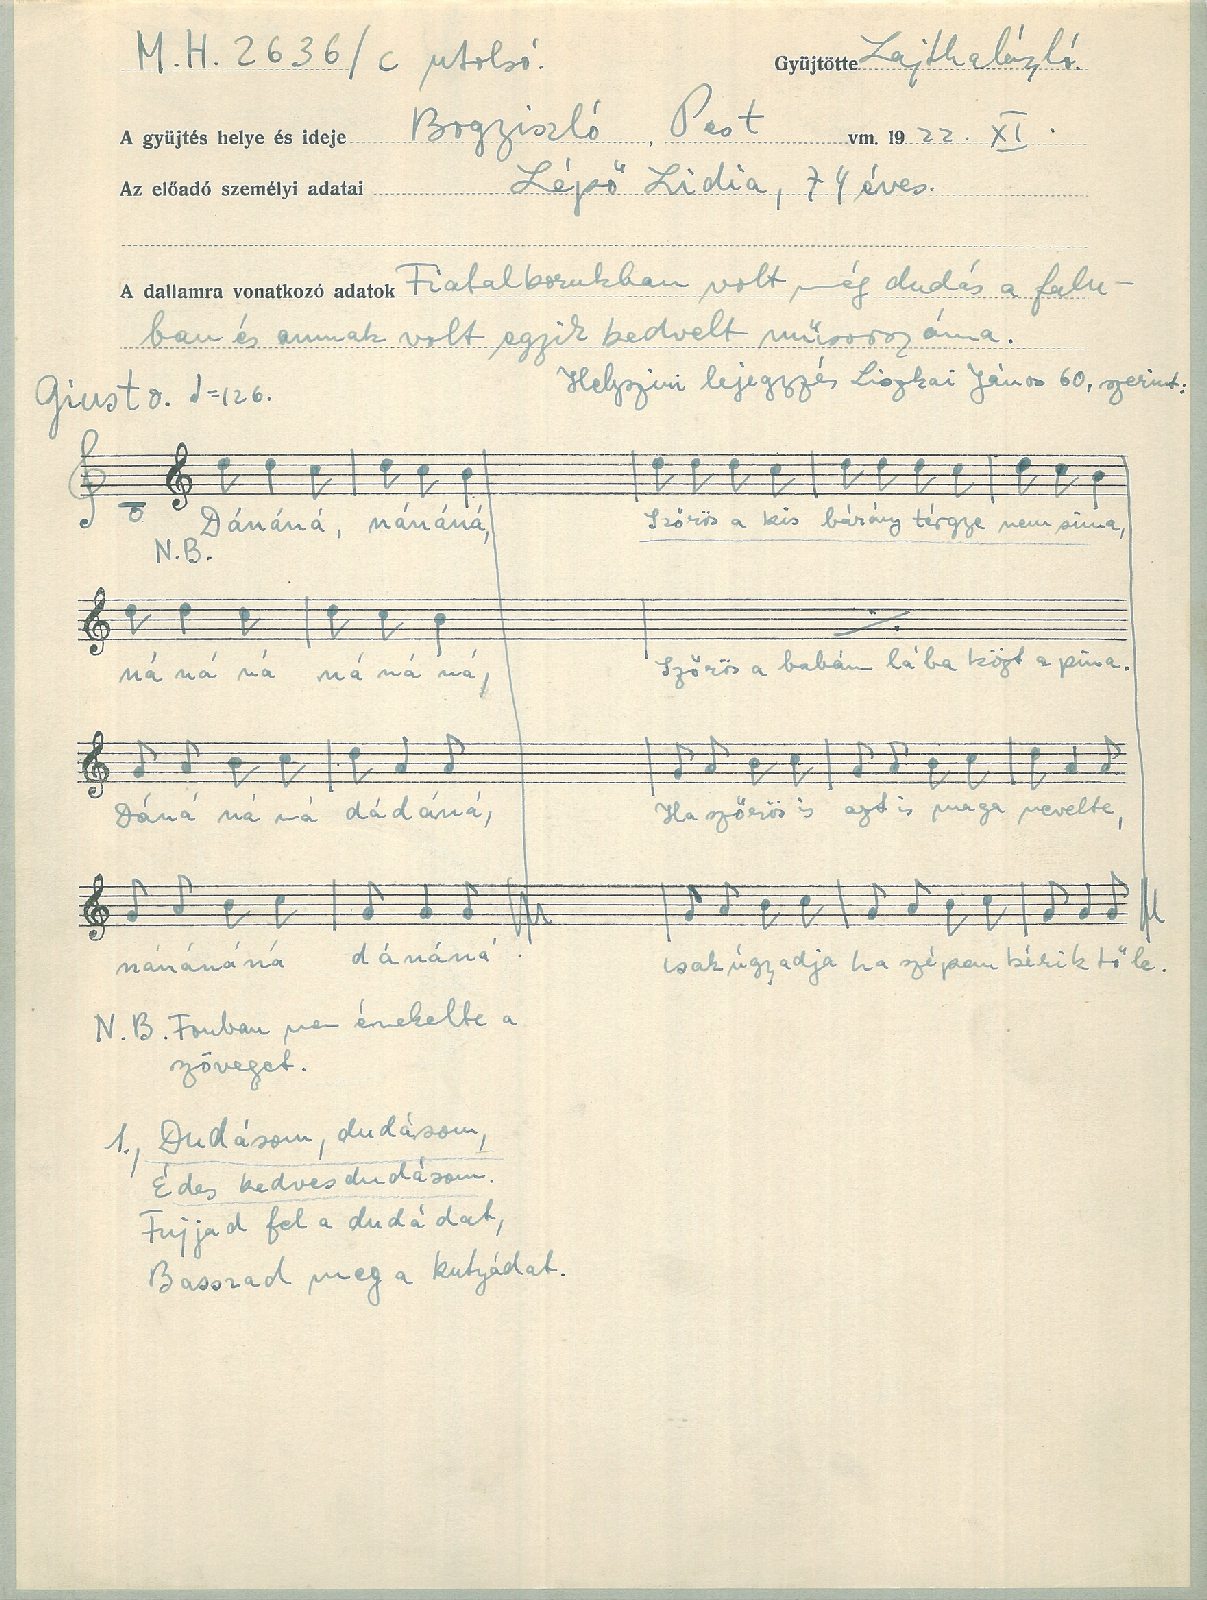 M.H. 2636/c utolsó.
Gyüjtötte Lajtha László.
A gyüjtés helye és ideje Bogyiszló, Pest vm. 1922. XI.
Az előadó személyi adatai Lépő Lidia, 74 éves.
A dallamra vonatkozó adatok Fiatalkorukban volt még dudás a falu-
ban és annak volt egyik kedvelt műsorszáma.
Helyszini lejegyzés Liszkai János 60, szerint:
Giusto. ♩=126.
Dánáná, nánáná,
Szőrös a kis bárány térgye nem sima,
N.B.
ná ná ná ná ná ná,
Szőrös a babám lába közt a pina.
Dáná ná ná dádáná,
Ha szőrös is azt is maga nevelte,
nánánáná dánáná.
csak úgy adja ha szépen kérik tőle.
N.B. Fonban nem énekelte a
szöveget.
1., Dudásom, dudásom,
Édes kedves dudásom.
Fujjad fel a dudádat,
Basszad meg a kutyádat.